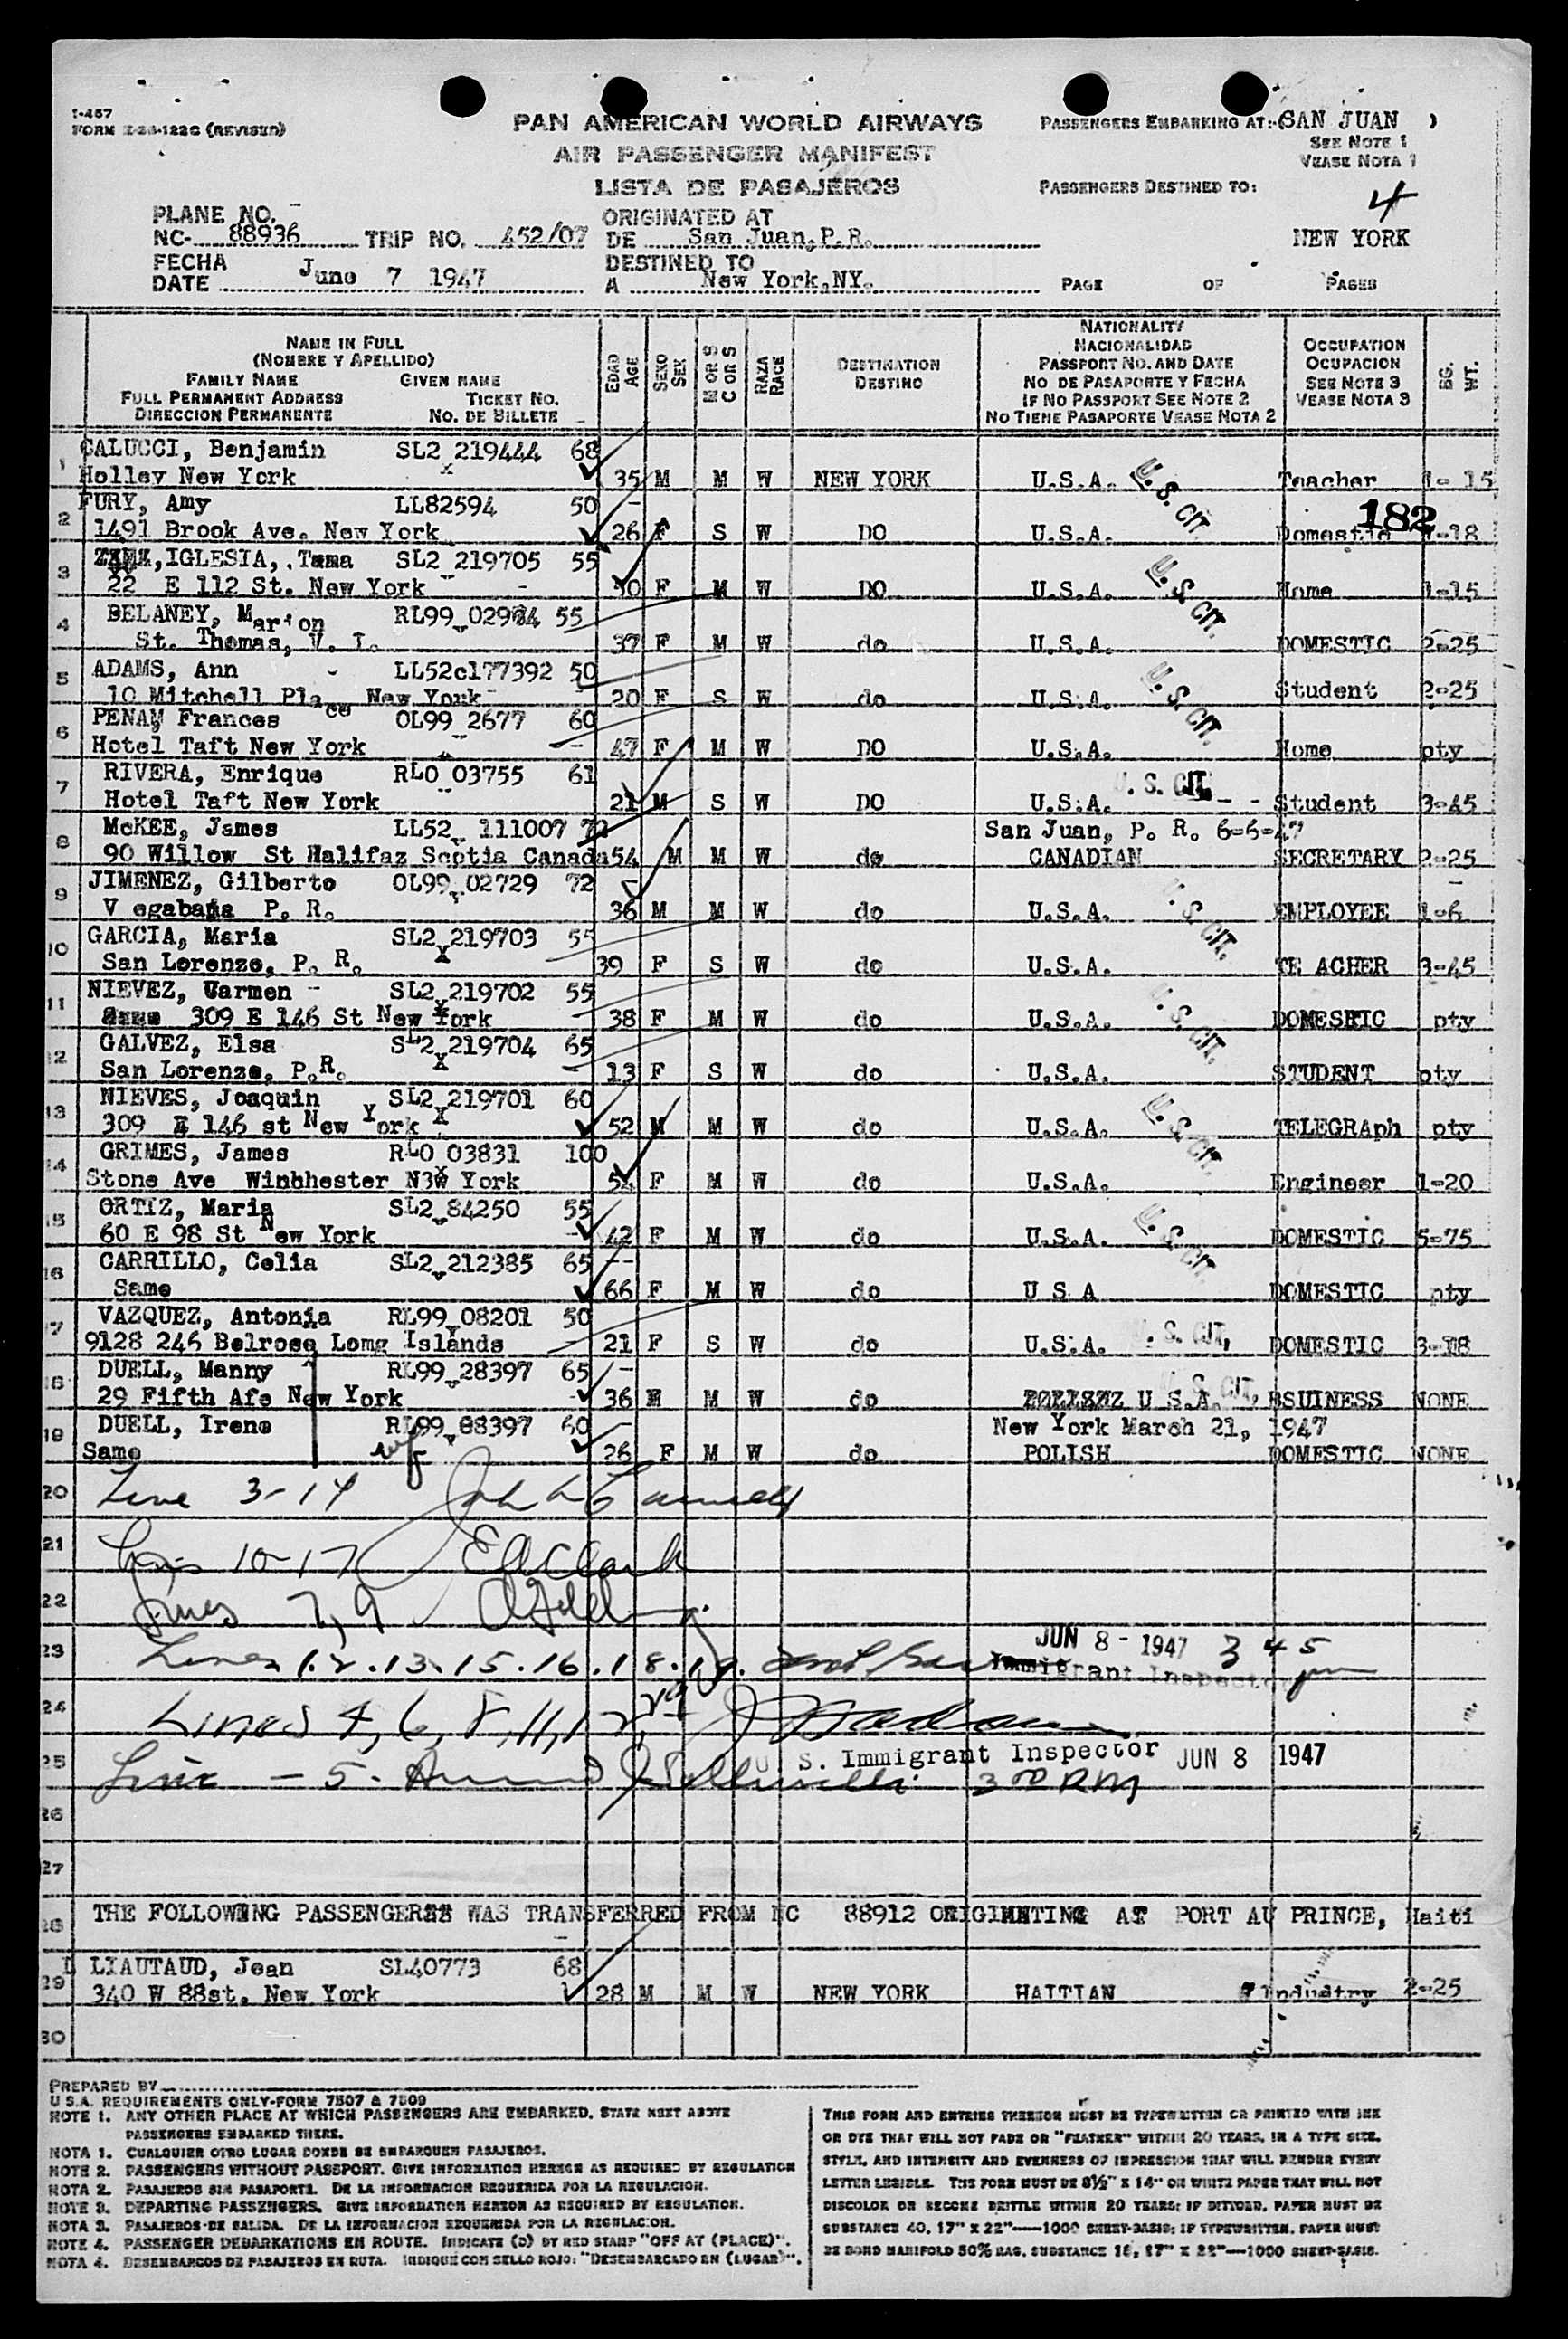 I-467
FORM (REVISED)
PAN AMERICAN WORLD AIRWAYS
AIR PASSENGER MANIFEST
LISTA DE PASAJEROS
PASSENGERS EMBARKING AT:-(SAN JUAN )
SEE NOTE 1
VEASE NOTA 1
PASSENGERS DESTINED TO:
4
NEW YORK
PLANE NO.
NC- 88936 TRIP NO. 452/07
FECHA
DATE June 7 1947
ORIGINATED AT
DE San Juan,P.R.
DESTINED TO
A New York,NY.
PAGE OF PAGES
NAME IN FULL
(NOMBRE Y APELLIDO)
FAMILY NAME GIVEN NAME
FULL PERMANENT ADDRESS TICKET NO.
DIRECCION PERMANENTE NO. DE BILLETE
EDAD AGE
SEXO SEX
M OR S C OR S
RAZA RACE
DESTINATION
DESTINO
NATIONALITY
NACIONALIDAD
PASSPORT NO. AND DATE
NO DE PASAPORTE Y FECHA
IF NO PASSPORT SEE NOTE 2
NO TIENE PASAPORTE VEASE NOTA 2
OCCUPATION
OCUPACION
SEE NOTE 3
VEASE NOTA 3
BG. WT.
1 CALUCCI, Benjamin SL2 219444 68
Holley New York 35 M M W NEW YORK U.S.A. U. S. CIT. Teacher 1- 15
2 FURY, Amy LL82594 50
1491 Brook Ave. New York 26 F S W DO U.S.A. Domestic 182 -18
3 IGLESIA, SL2 219705 55
22 E 112 St. New York F M W DO U.S.A. U. S. CIT. Home 1-15
4 BELANEY, Marion RL99 55
St. Thomas, V. I. 37 F M W do U.S.A. DOMESTIC 2-25
5 ADAMS, Ann LL52c177392 50
10 Mitchell Place New York 20 F S W do U.S.A. U. S. CIT. Student 2-25
6 PENAY Frances OL99 2677 60
Hotel Taft New York 47 F M W DO U.S.A. Home pty
7 RIVERA, Enrique RLO 03755 61
Hotel Taft New York 21 M S W DO U.S.A. U. S. CIT. Student 3-45
8 McKEE, James LL52 111007 San Juan, P. R. 6-6-47
90 Willow St Halifaz Scotia Canada 54 M M W do CANADIAN SECRETARY 2-25
9 JIMENEZ, Gilberto OL99 02729 72
V egabaña P. R. 36 M M W do U.S.A. U. S. CIT. EMPLOYEE 1-6
10 GARCIA, Maria SL2 219703 55
San Lorenzo, P. R. 39 F S W do U.S.A. TE ACHER 3-45
11 NIEVEZ, Carmen SL2 219702 55
309 E 146 St New York 38 F M W do U.S.A. U. S. CIT. DOMESTIC pty
12 GALVEZ, Elsa SL2 219704 65
San Lorenzo, P.R. 13 F S W do U.S.A. STUDENT pty
13 NIEVES, Joaquin SL2 219701 60
309 E 146 st New York 52 M M W do U.S.A. U. S. CIT. TELEGRAph pty
14 GRIMES, James RLO 03831 100
Stone Ave Winbhester N3w York 54 F M W do U.S.A. Engineer 1-20
15 ORTIZ, Maria SL2 84250 55
60 E 98 St New York 42 F M W do U.S.A. U. S. CIT. DOMESTIC 5-75
16 CARRILLO, Celia SL2 212385 65
Same 66 F M W do U S A DOMESTIC pty
17 VAZQUEZ, Antonia RL99 08201 50
9128 246 Belrose Lomg Islands 21 F S W do U.S.A. U. S. CIT. DOMESTIC 3-18
18 DUELL, Manny RL99 28397 65
29 Fifth Afe New York 36 M M W do U S A. CIT. BSUINESS NONE
19 DUELL, Irene RL99 88397 60 New York March 21, 1947
Same wf 26 F M W do POLISH DOMESTIC NONE
20 Line 3-14 John
21 Lines 10-17 EA Clark
22 Lines 7, 9
23 Lines 1.2.13.15.16.18.19. JUN 8 - 1947 3 45 pm
Immigrant Inspector
24 Lines 4, 6, 8, 11, 12,
25 Line - 5. U. S. Immigrant Inspector JUN 8 1947
3 00 PM
26
27
28 THE FOLLOWING PASSENGER WAS TRANSFERRED FROM NC 88912 ORIGINATING AT PORT AU PRINCE, Haiti
29 LIAUTAUD, Jean SL40773 68
340 W 88st. New York 28 M M W NEW YORK HAITIAN Industry 2-25
30
PREPARED BY
U.S.A. REQUIREMENTS ONLY-FORM 7507 & 7509
NOTE 1. ANY OTHER PLACE AT WHICH PASSENGERS ARE EMBARKED, STATE NEXT ABOVE
PASSENGERS EMBARKED THERE.
NOTA 1. CUALQUIER OTRO LUGAR DONDE SE EMBARQUEN PASAJEROS.
NOTE 2. PASSENGERS WITHOUT PASSPORT. GIVE INFORMATION HEREON AS REQUIRED BY REGULATION
NOTA 2. PASAJEROS SIN PASAPORTE. DE LA INFORMACION REQUERIDA POR LA REGULACION.
NOTE 3. DEPARTING PASSENGERS. GIVE INFORMATION HEREON AS REQUIRED BY REGULATION.
NOTA 3. PASAJEROS DE SALIDA. DE LA INFORMACION REQUERIDA POR LA REGULACION.
NOTE 4. PASSENGER DEBARKATIONS EN ROUTE. INDICATE (D) BY RED STAMP "OFF AT (PLACE)".
NOTA 4. DESEMBARCOS DE PASAJEROS EN RUTA. INDIQUE CON SELLO ROJO: "DESEMBARCADO EN (LUGAR)".
THIS FORM AND ENTRIES THEREON MUST BE TYPEWRITTEN OR PRINTED WITH INK
OR DYE THAT WILL NOT FADE OR "FEATHER" WITHIN 20 YEARS, IN A TYPE SIZE,
STYLE, AND INTENSITY AND EVENNESS OF IMPRESSION THAT WILL RENDER EVERY
LETTER LEGIBLE. THIS FORM MUST BE 8½" X 14" ON WHITE PAPER THAT WILL NOT
DISCOLOR OR BECOME BRITTLE WITHIN 20 YEARS; IF DITTOED, PAPER MUST BE
SUBSTANCE 40, 17" X 22"—1000 SHEET-BASIS; IF TYPEWRITTEN, PAPER MUST
BE BOND MANIFOLD 50% RAG, SUBSTANCE 16, 17" X 22"—1000 SHEET-BASIS.